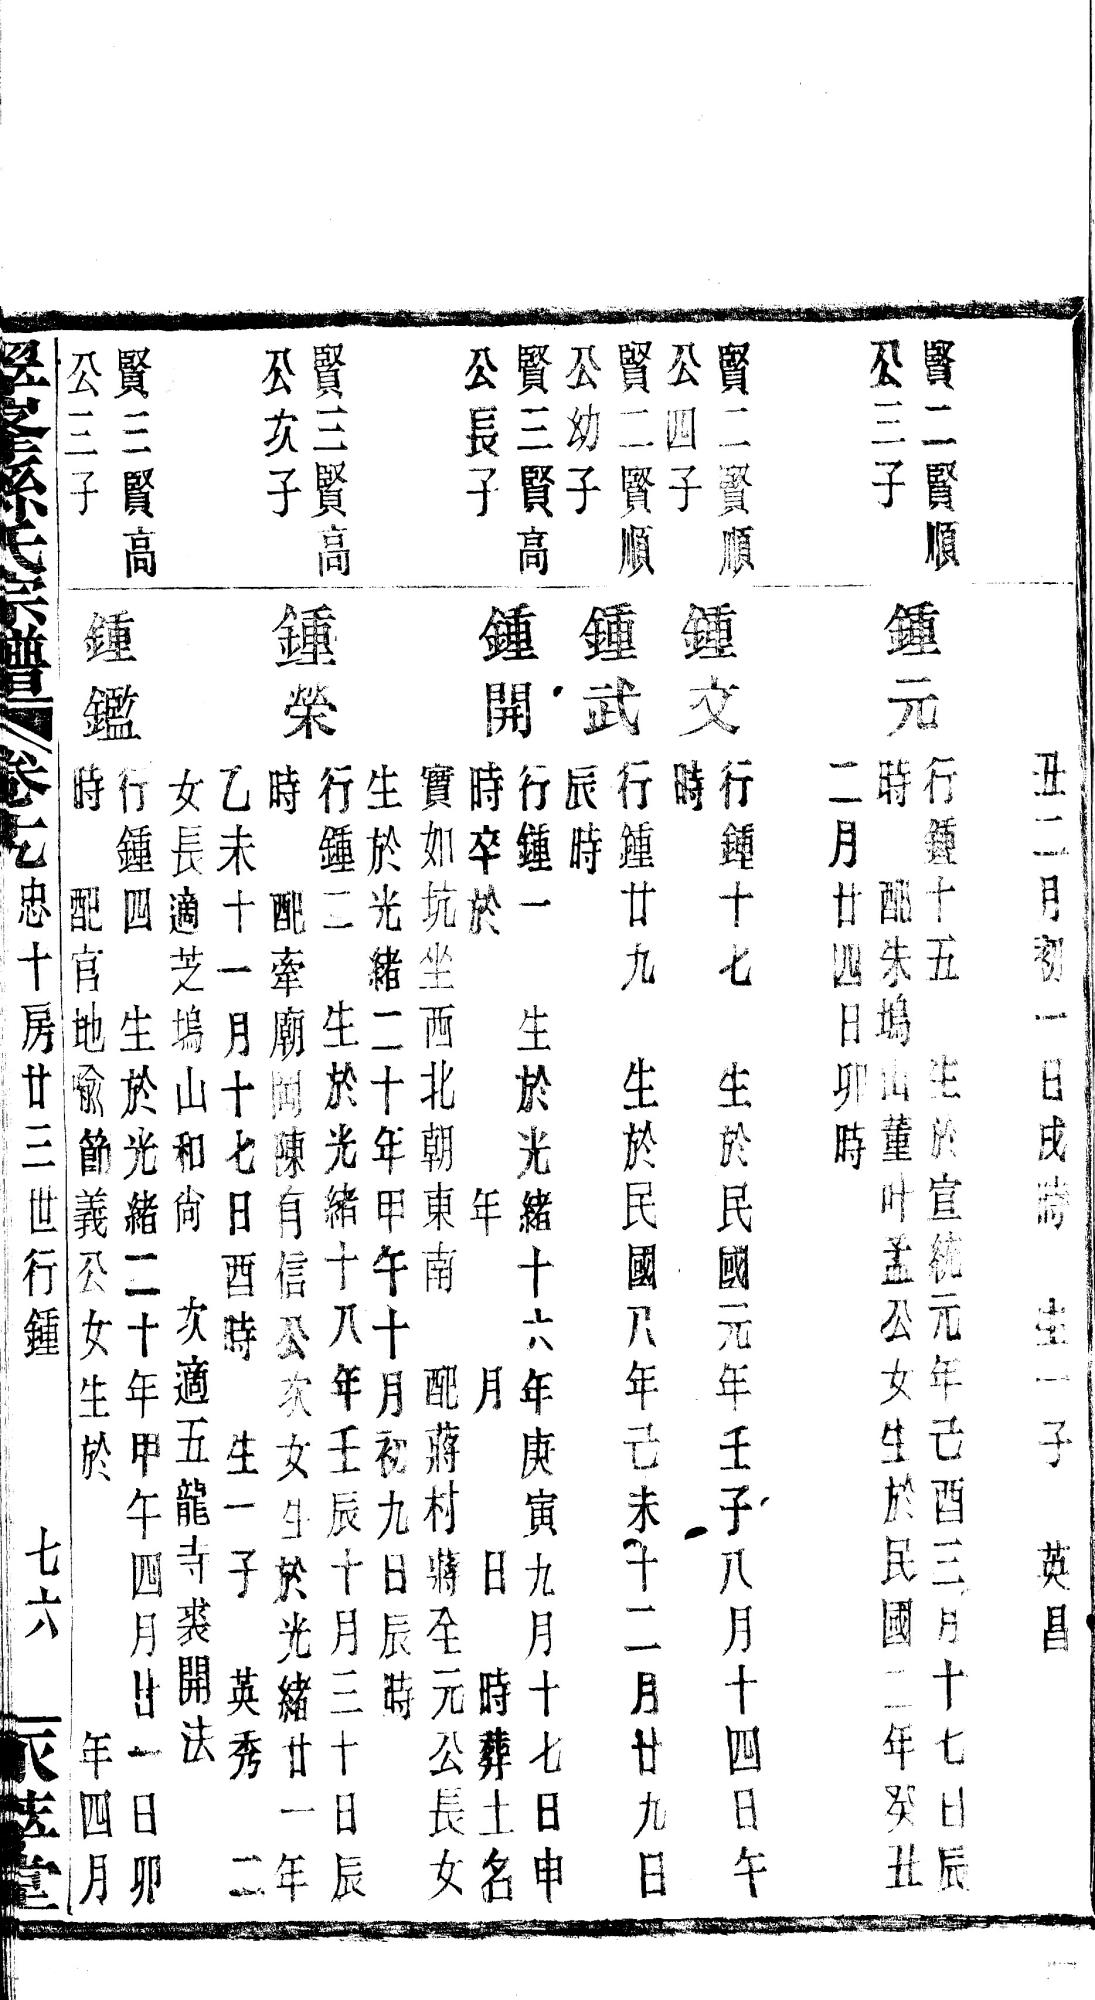 丑二月初一日戌時　生一子　英昌
賢二賢順
公三子
鍾元
行鍾十五　生於宣統元年己酉三月十七日辰
時　配朱塢山董叶孟公女生於民國二年癸丑
二月廿四日卯時
賢二賢順
公四子
鍾文
行鍾十七　生於民國元年壬子八月十四日午
時
賢二賢順
公幼子
鍾武
行鍾廿九　生於民國八年己未十二月廿九日
辰時
賢三賢高
公長子
鍾開
行鍾一　生於光緒十六年庚寅九月十七日申
時卒於　年　月　日　時葬土名
實如坑坐西北朝東南　配蔣村蔣全元公長女
生於光緒二十年甲午十月初九日辰時
賢三賢高
公次子
鍾榮
行鍾二　生於光緒十八年壬辰十月三十日辰
時　配牽廟岡陳有信公次女生於光緒廿一年
乙未十一月十七日酉時　生一子　英秀　二
女長適芝塢山和尙　次適五龍寺裘開法
賢三賢高
公三子
鍾鑑
行鍾四　生於光緒二十年甲午四月廿一日卯
時　配官地喩節義公女生於　年四月
孫氏宗譜　卷之　忠十房廿三世行鍾　七六　堂